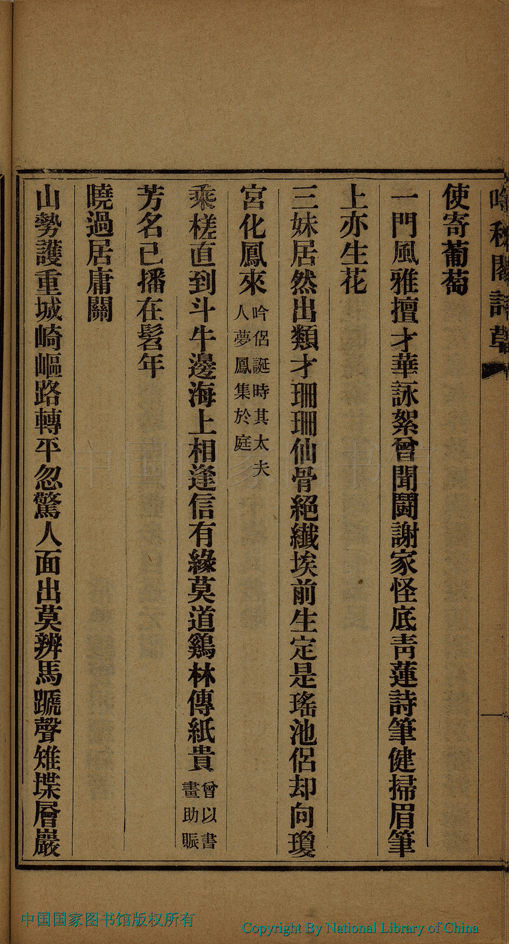 吟秋閣詩草
使寄葡萄
一門風雅擅才華詠絮曾聞鬭謝家怪底靑蓮詩筆健掃眉筆
上亦生花
三妹居然出類才珊珊仙骨絕纖埃前生定是瑤池侶却向瓊
宮化鳳來
吟侶誕時其太夫
人夢鳳集於庭
乘槎直到斗牛邊海上相逢信有緣莫道鷄林傳紙貴
曾以書
畫助賑
芳名已播在髫年
曉過居庸關
山勢護重城崎嶇路轉平忽驚人面出莫辨馬蹏聲雉堞層巖
中国国家图书馆版权所有
Copyright By National Library of China